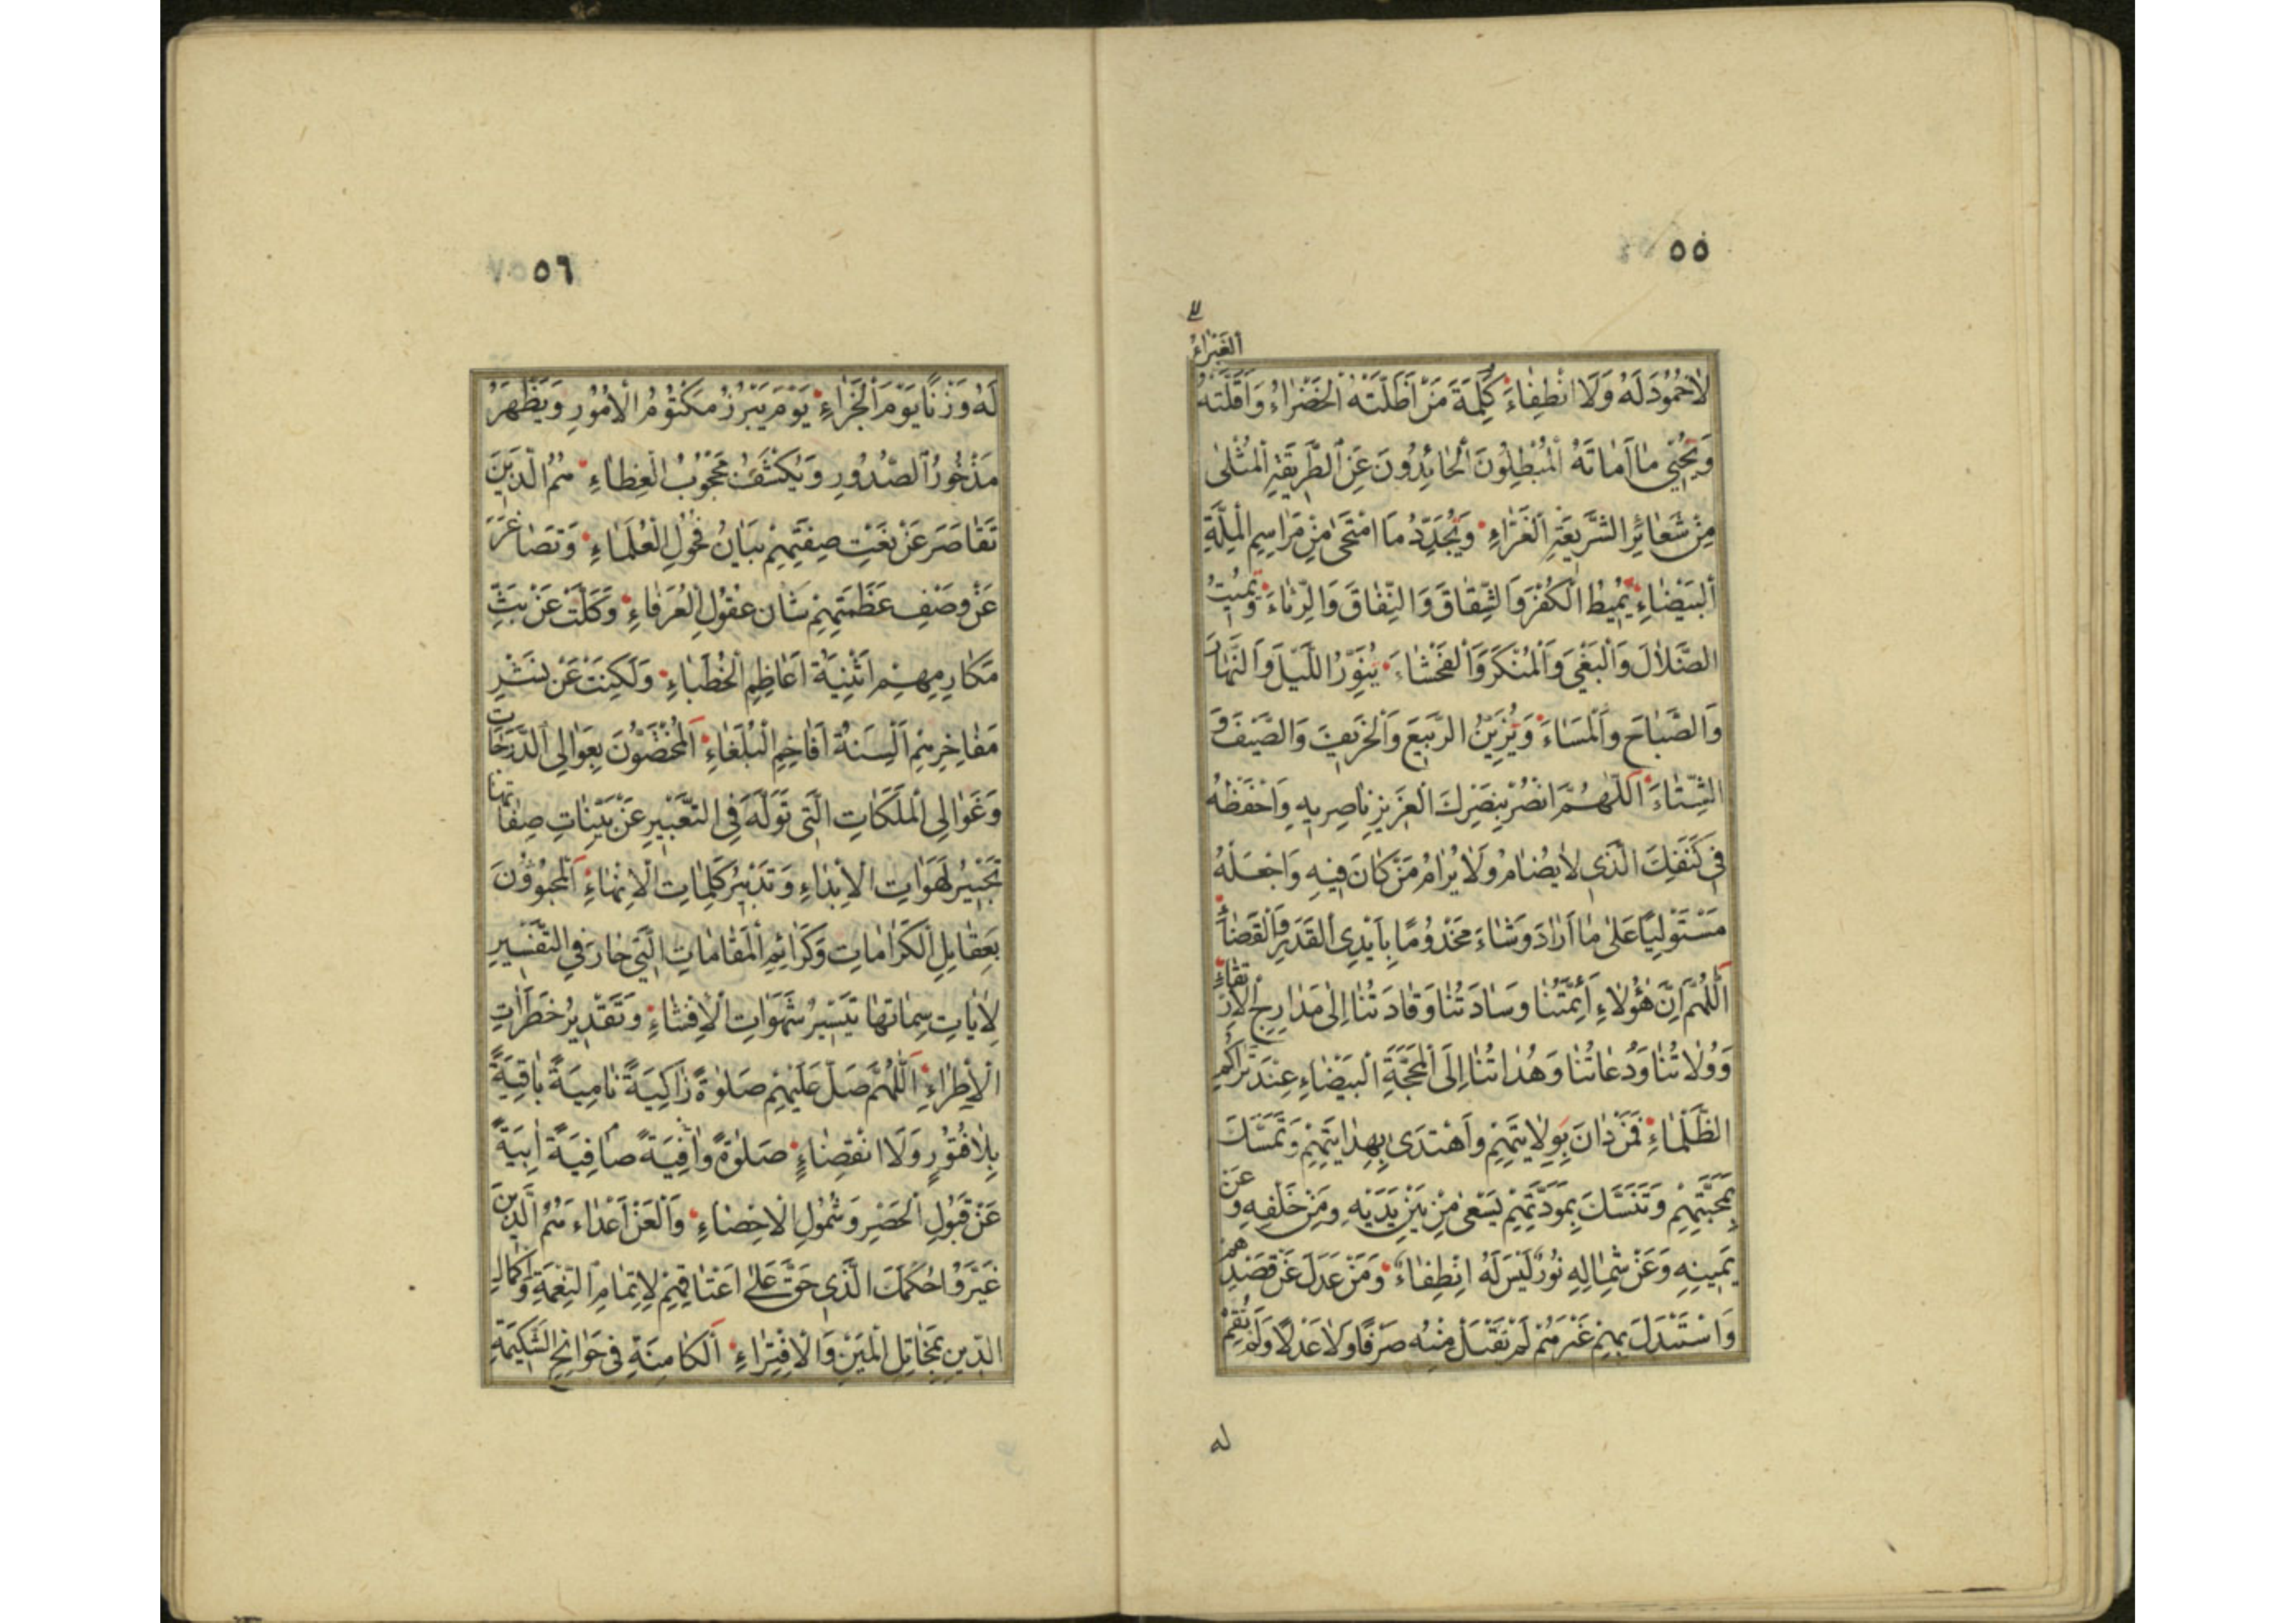 ٥٥
الغَبْرَاءُ
لَاخُمُودَ لَهُ وَلَا انْطِفَاءَ كَلِمَةَ مَنْ اَظَلَّتْهُ الْخَضْرَاءُ وَاَقَلَّتْهُ
وَيُحْيِي مَا اَمَاتَهُ الْمُبْطِلُونَ الْحَائِدُونَ عَنِ الطَّرِيقَةِ الْمُثْلىٰ
مِنْ شَعَائِرِ الشَّرِيعَةِ الْغَرَّاءِ وَيُجَدِّدُ مَا امْتَحىٰ مِنْ مَرَاسِمِ الْمِلَّةِ
الْبَيْضَاءِ يُمِيطُ الْكُفْرَ وَالشِّقَاقَ وَالنِّفَاقَ وَالرِّئَاءَ وَيُمِيتُ
الضَّلَالَ وَالْبَغْيَ وَالْمُنْكَرَ وَالْفَحْشَاءَ يُنَوِّرُ اللَّيْلَ وَالنَّهَارَ
وَالصَّبَاحَ وَالْمَسَاءَ وَيُزَيِّنُ الرَّبِيعَ وَالْخَرِيفَ وَالصَّيْفَ وَ
الشِّتَاءَ اَللّٰهُمَّ انْصُرْ بِنَصْرِكَ الْعَزِيزِ نَاصِرِيهِ وَاحْفَظْهُ
فِي كَنَفِكَ الَّذِي لَا يُضَامُ وَلَا يُرَامُ مَنْ كَانَ فِيهِ وَاجْعَلْهُ
مُسْتَوْلِيًا عَلىٰ مَا اَرَادَ وَشَاءَ مَخْدُومًا بِاَيْدِي الْقَدَرِ وَالْقَضَاءِ
اَللّٰهُمَّ اِنَّ هٰؤُلَاءِ اَئِمَّتُنَا وَسَادَتُنَا وَقَادَتُنَا اِلىٰ مَدَارِجِ الْاِرْتِقَاءِ
وَوُلَاتُنَا وَدُعَاتُنَا وَهُدَاتُنَا اِلَى الْمَحَجَّةِ الْبَيْضَاءِ عِنْدَ تَرَاكُمِ
الظَّلْمَاءِ فَمَنْ دَانَ بِوِلَايَتِهِمْ وَاهْتَدىٰ بِهِدَايَتِهِمْ وَتَمَسَّكَ
بِمَحَبَّتِهِمْ وَتَنَسَّكَ بِمَوَدَّتِهِمْ يَسْعىٰ مِنْ بَيْنِ يَدَيْهِ وَمِنْ خَلْفِهِ وَعَنْ
يَمِينِهِ وَعَنْ شِمَالِهِ نُورٌ لَيْسَ لَهُ اِنْطِفَاءٌ وَمَنْ عَدَلَ عَنْ قَصْدِهِمْ
وَاسْتَبْدَلَ بِهِمْ غَيْرَهُمْ لَمْ تَقْبَلْ مِنْهُ صَرْفًا وَلَا عَدْلًا وَلَمْ تُقِمْ
له
٥٦
لَهُ وَزْنًا يَوْمَ الْجَزَاءِ يَوْمَ يَبْرُزُ مَكْتُومُ الْاُمُورِ وَيَظْهَرُ
مَذْخُورُ الصُّدُورِ وَيُكْشَفُ مَحْجُوبُ الْغِطَاءِ هُمُ الَّذِينَ
تَقَاصَرَ عَنْ نَعْتِ صِفَتِهِمْ بَيَانُ فُحُولِ الْعُلَمَاءِ وَتَصَاغَرَ
عَنْ وَصْفِ عَظَمَتِهِمْ شَان عُقُولِ الْعُرَفَاءِ وَكَلَّتْ عَنْ بَثِّ
مَكَارِمِهِمْ اَثْنِيَةُ اَعَاظِمِ الْخُطَبَاءِ وَلَكِنَتْ عَنْ نَشْرِ
مَفَاخِرِهِمْ اَلْسِنَةُ اَفَاخِمِ الْبُلَغَاءِ اَلْمُخْتَصُّونَ بِعَوَالِي الدَّرَجَاتِ
وَغَوَالِي الْمَلَكَاتِ الَّتِي تَوَلَّهَ فِي التَّعْبِيرِ عَنْ بَيِّنَاتِ صِفَاتِهَا
تَحْبِيرُ لَهَوَاتِ الْاِبْدَاءِ وَتَدْبِيرُ كَلِمَاتِ الْاِنْهَاءِ اَلْمَحْبُوُّونَ
بِعَقَايِلِ الْكَرَامَاتِ وَكَرَائِمِ الْمَقَامَاتِ الَّتِي حَارَ فِي التَّفْسِيرِ
لِاٰيَاتِ سِمَاتِهَا تَيْسِيرُ سَهَوَاتِ الْاِفْشَاءِ وَتَقْدِيرُ خَطَرَاتِ
الْاِطْرَاءِ اَللّٰهُمَّ صَلِّ عَلَيْهِمْ صَلٰوةً زَاكِيَةً نَامِيَةً بَاقِيَةً
بِلَا فُتُورٍ وَلَا انْقِضَاءٍ صَلٰوةً وَافِيَةً صَافِيَةً اَبِيَّةً
عَنْ قَبُولِ الْحَصْرِ وَشُمُولِ الْاِحْصَاءِ وَالْعَنْ اَعْدَاءَهُمُ الَّذِينَ
غَيَّرُوا حُكْمَكَ الَّذِي حَقَّ عَلىٰ اَعْنَاقِهِمْ لِاِتْمَامِ النِّعْمَةِ وَاِكْمَالِ
الدِّينِ بِمَخَاتِلِ الْمَيْنِ وَالْاِفْتِرَاءِ اَلْكَامِنَةِ فِي جَوَانِحِ الشَّكِيمَةِ